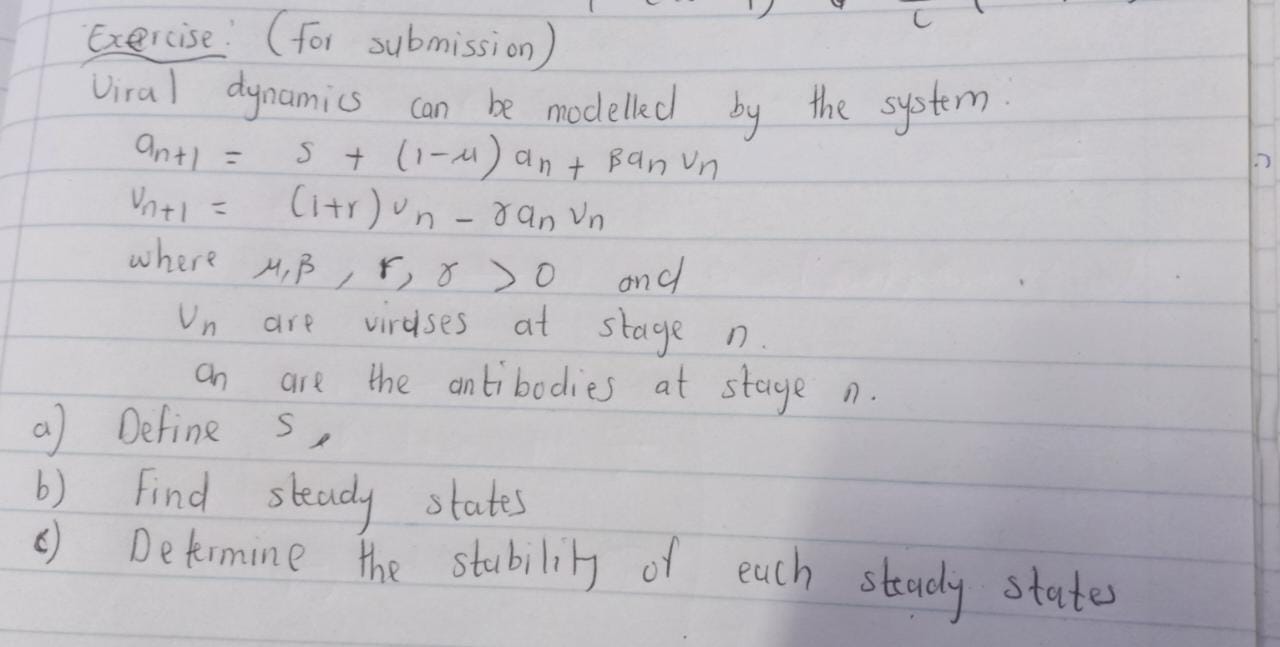 Exercise: (for submission)
Viral dynamics can be modelled by the system.
an+1 = s + (1-μ) an + βan vn
vn+1 = (1+r) vn - γan vn
where μ, β, r, γ > 0 and
vn are viruses at stage n.
an are the antibodies at stage n.
a) Define s.
b) Find steady states
c) Determine the stability of each steady states